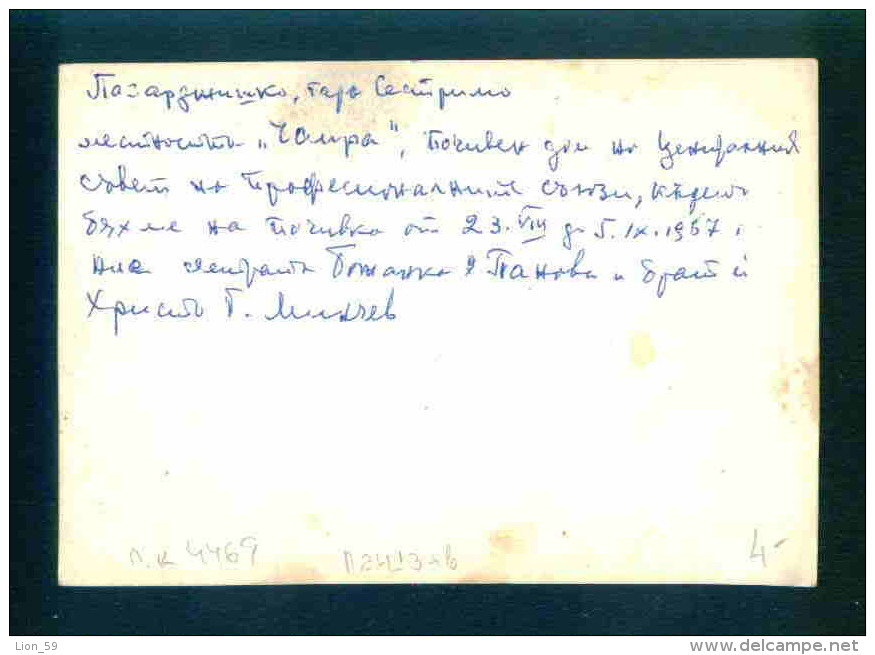 Пазарджишко, гара Сестримо
местността „Чаира", Почивен дом на Централния
съвет на Професионалните съюзи, където
бяхме на почивка от 23.VIII до 5.IX.1957 г.
Ние сестрата Божанка Панова и брат ѝ
Христо Г. Минчев
П.К 4469
4-
Lion_59
www.delcampe.net